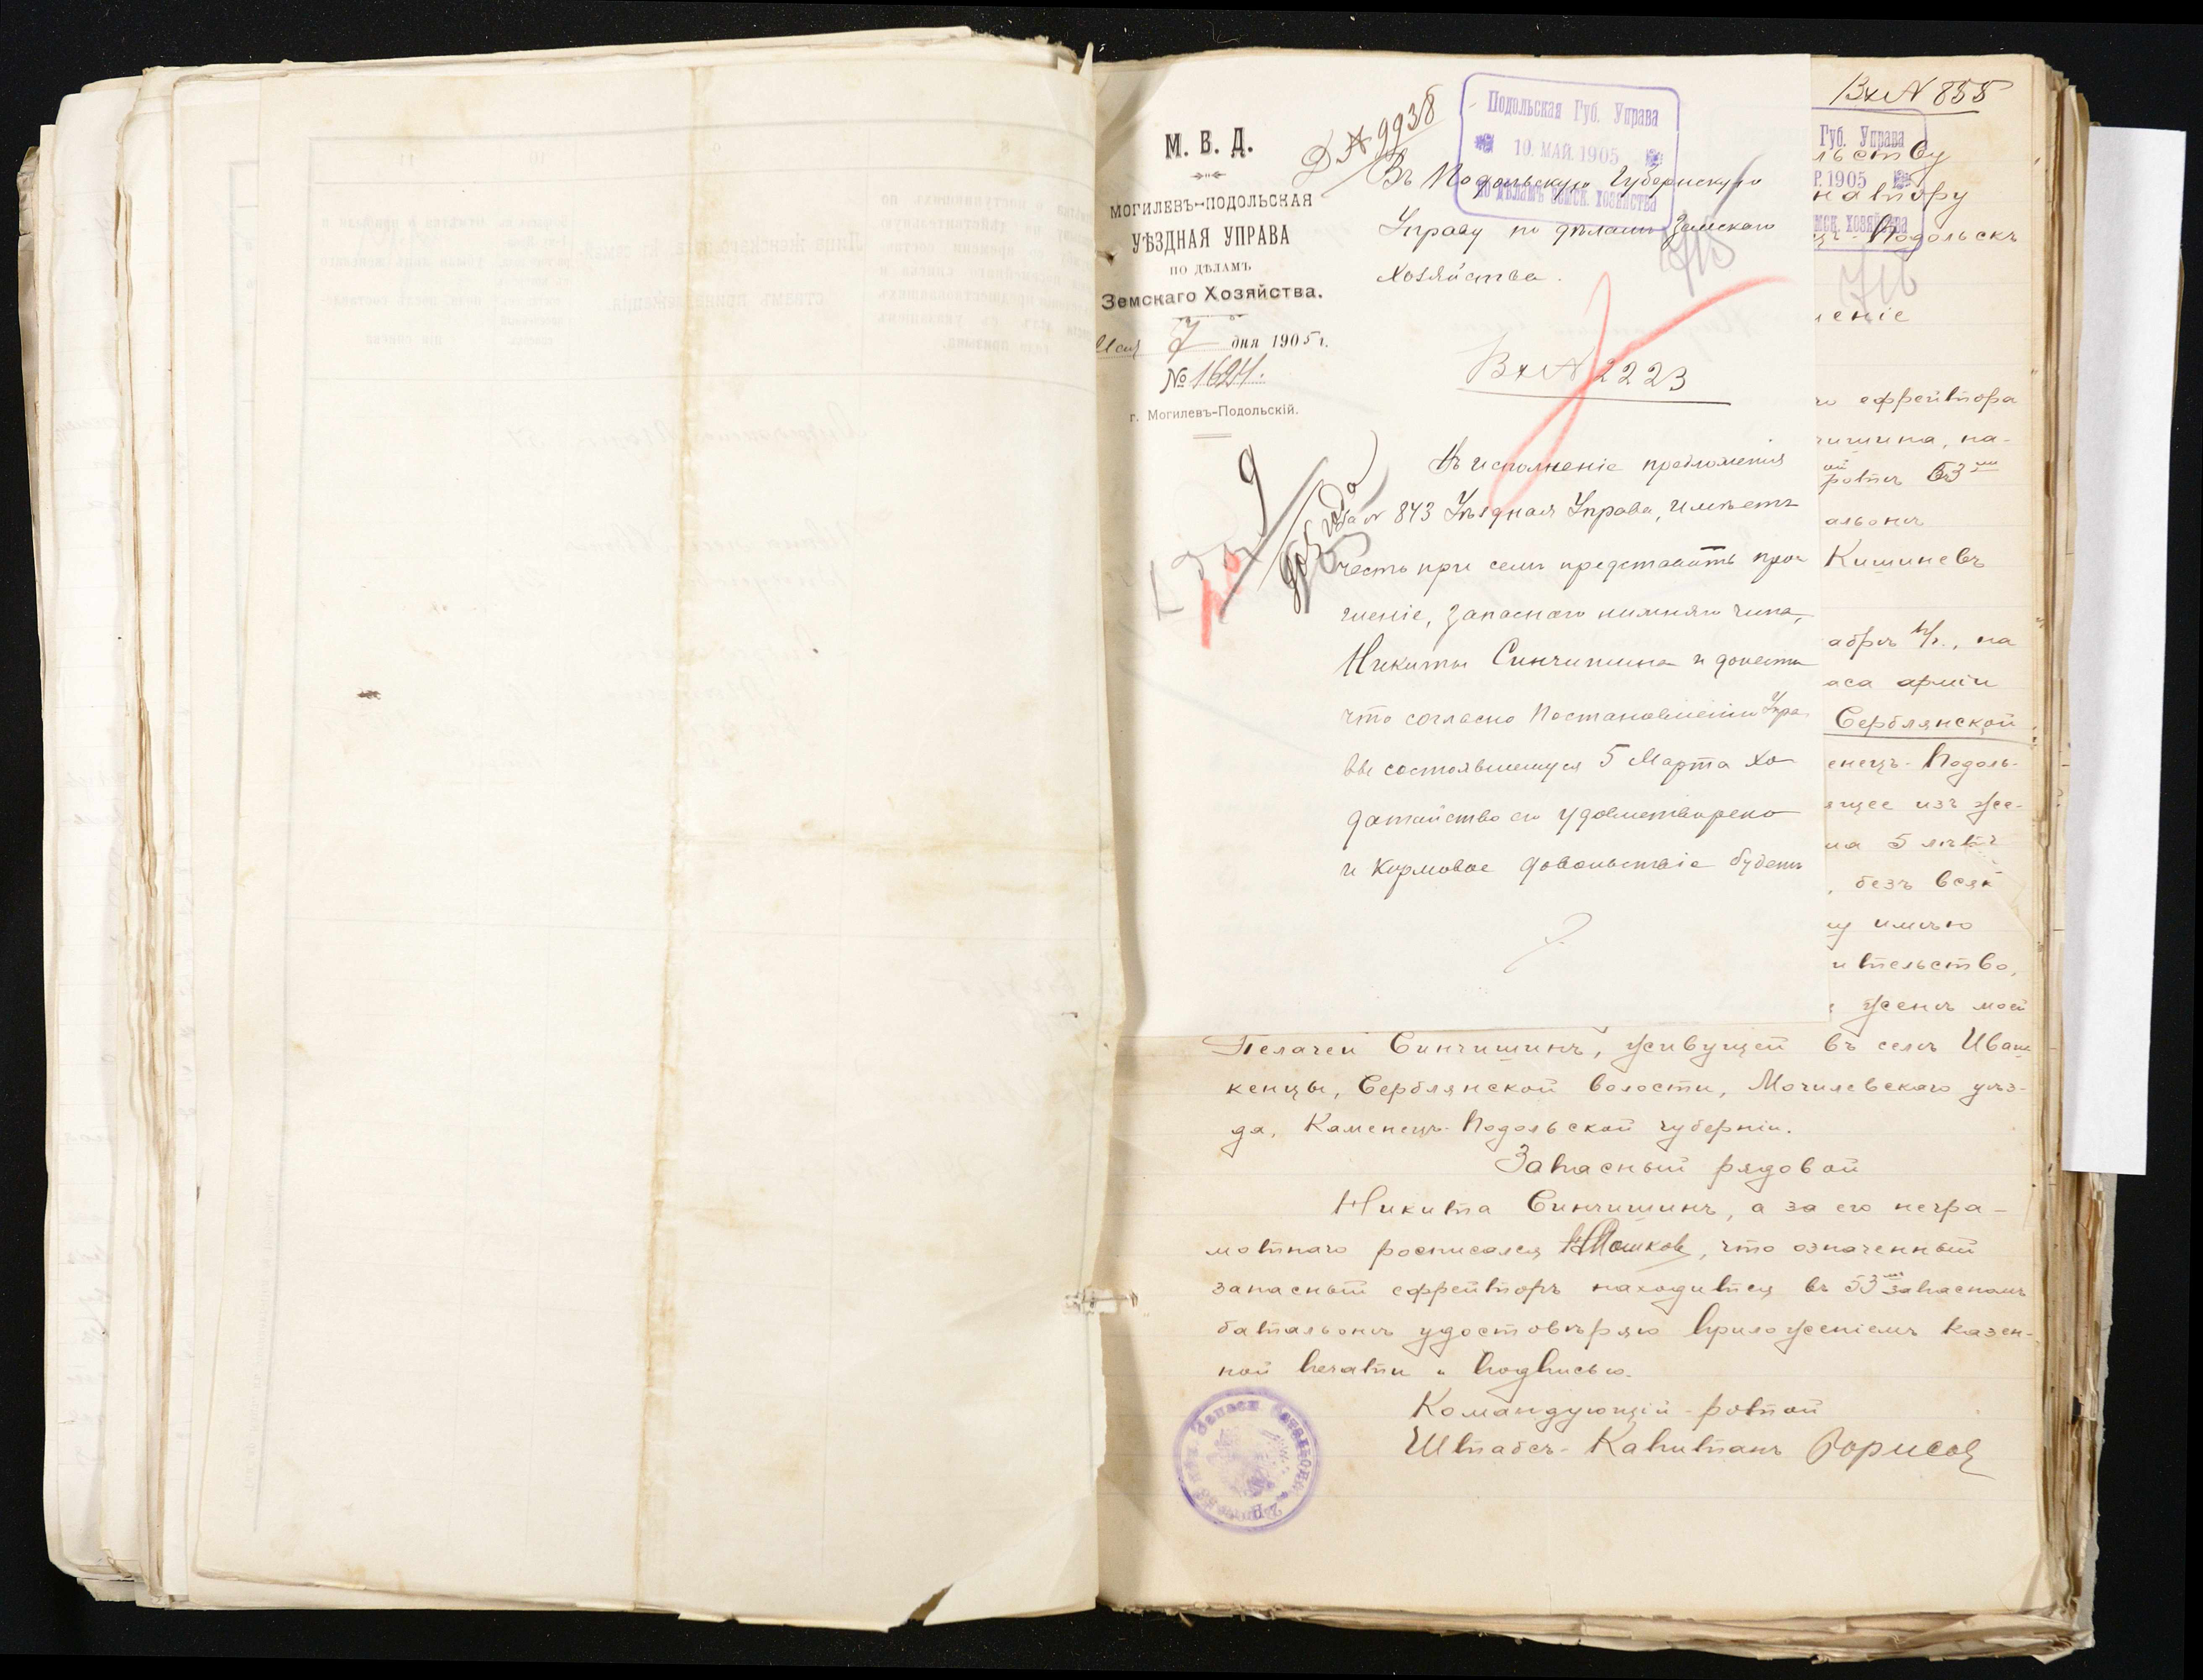 М. В. Д.
МОГИЛЕВЪ-ПОДОЛЬСКАЯ
УѢЗДНАЯ УПРАВА
ПО ДѢЛАМЪ
Земскаго Хозяйства.
Мая 7 дня 1905 г.
№ 1624.
г. Могилевъ-Подольскій.
Д № 9938
Подольская Губ. Управа
10. МАЙ. 1905
по дѣламъ земск. хозяйства
Въ Подольскую Губернскую
Управу по дѣламъ Земскаго
Хозяйства.
Вх № 2223
Въ исполненіе предложенія
за № 843 Уѣздная Управа, имѣетъ
честь при семъ представить про
шеніе, запаснаго нижняго чина,
Никиты Синчишина и донести
что согласно Постановленію Упра
вы состоявшемуся 5 Марта хо
датайство его удовлетворено
и кормовое довольствіе будетъ
Вх № 855
Губ. Управа
Р. 1905
мск. хозяйства
льству
натору
цъ-Подольскъ
716
еніе
ефрейтора
чишина, на-
ротъ 53
альонъ
Кишиневъ
абрѣ н/г., на
аса арміи
Серблянской
енецъ-Подоль-
ящее изъ же-
на 5 лѣтъ
, безъ всяк
имѣю
ительство,
женѣ моей
Пелагеи Синчишинъ, живущей въ селѣ Иваш
кенцы, Серблянской волости, Могилевскаго уѣз-
да, Каменецъ-Подольской губерніи.
Запасный рядовой
Никита Синчишинъ, а за его негра-
мотнаго росписался Мошков, что означенный
запасный ефрейторъ находится въ 53 запасномъ
баталіонѣ удостовѣряю приложеніемъ казен-
ной печати и подписью.
Командующій ротой
Штабсъ-Капитанъ Борисов